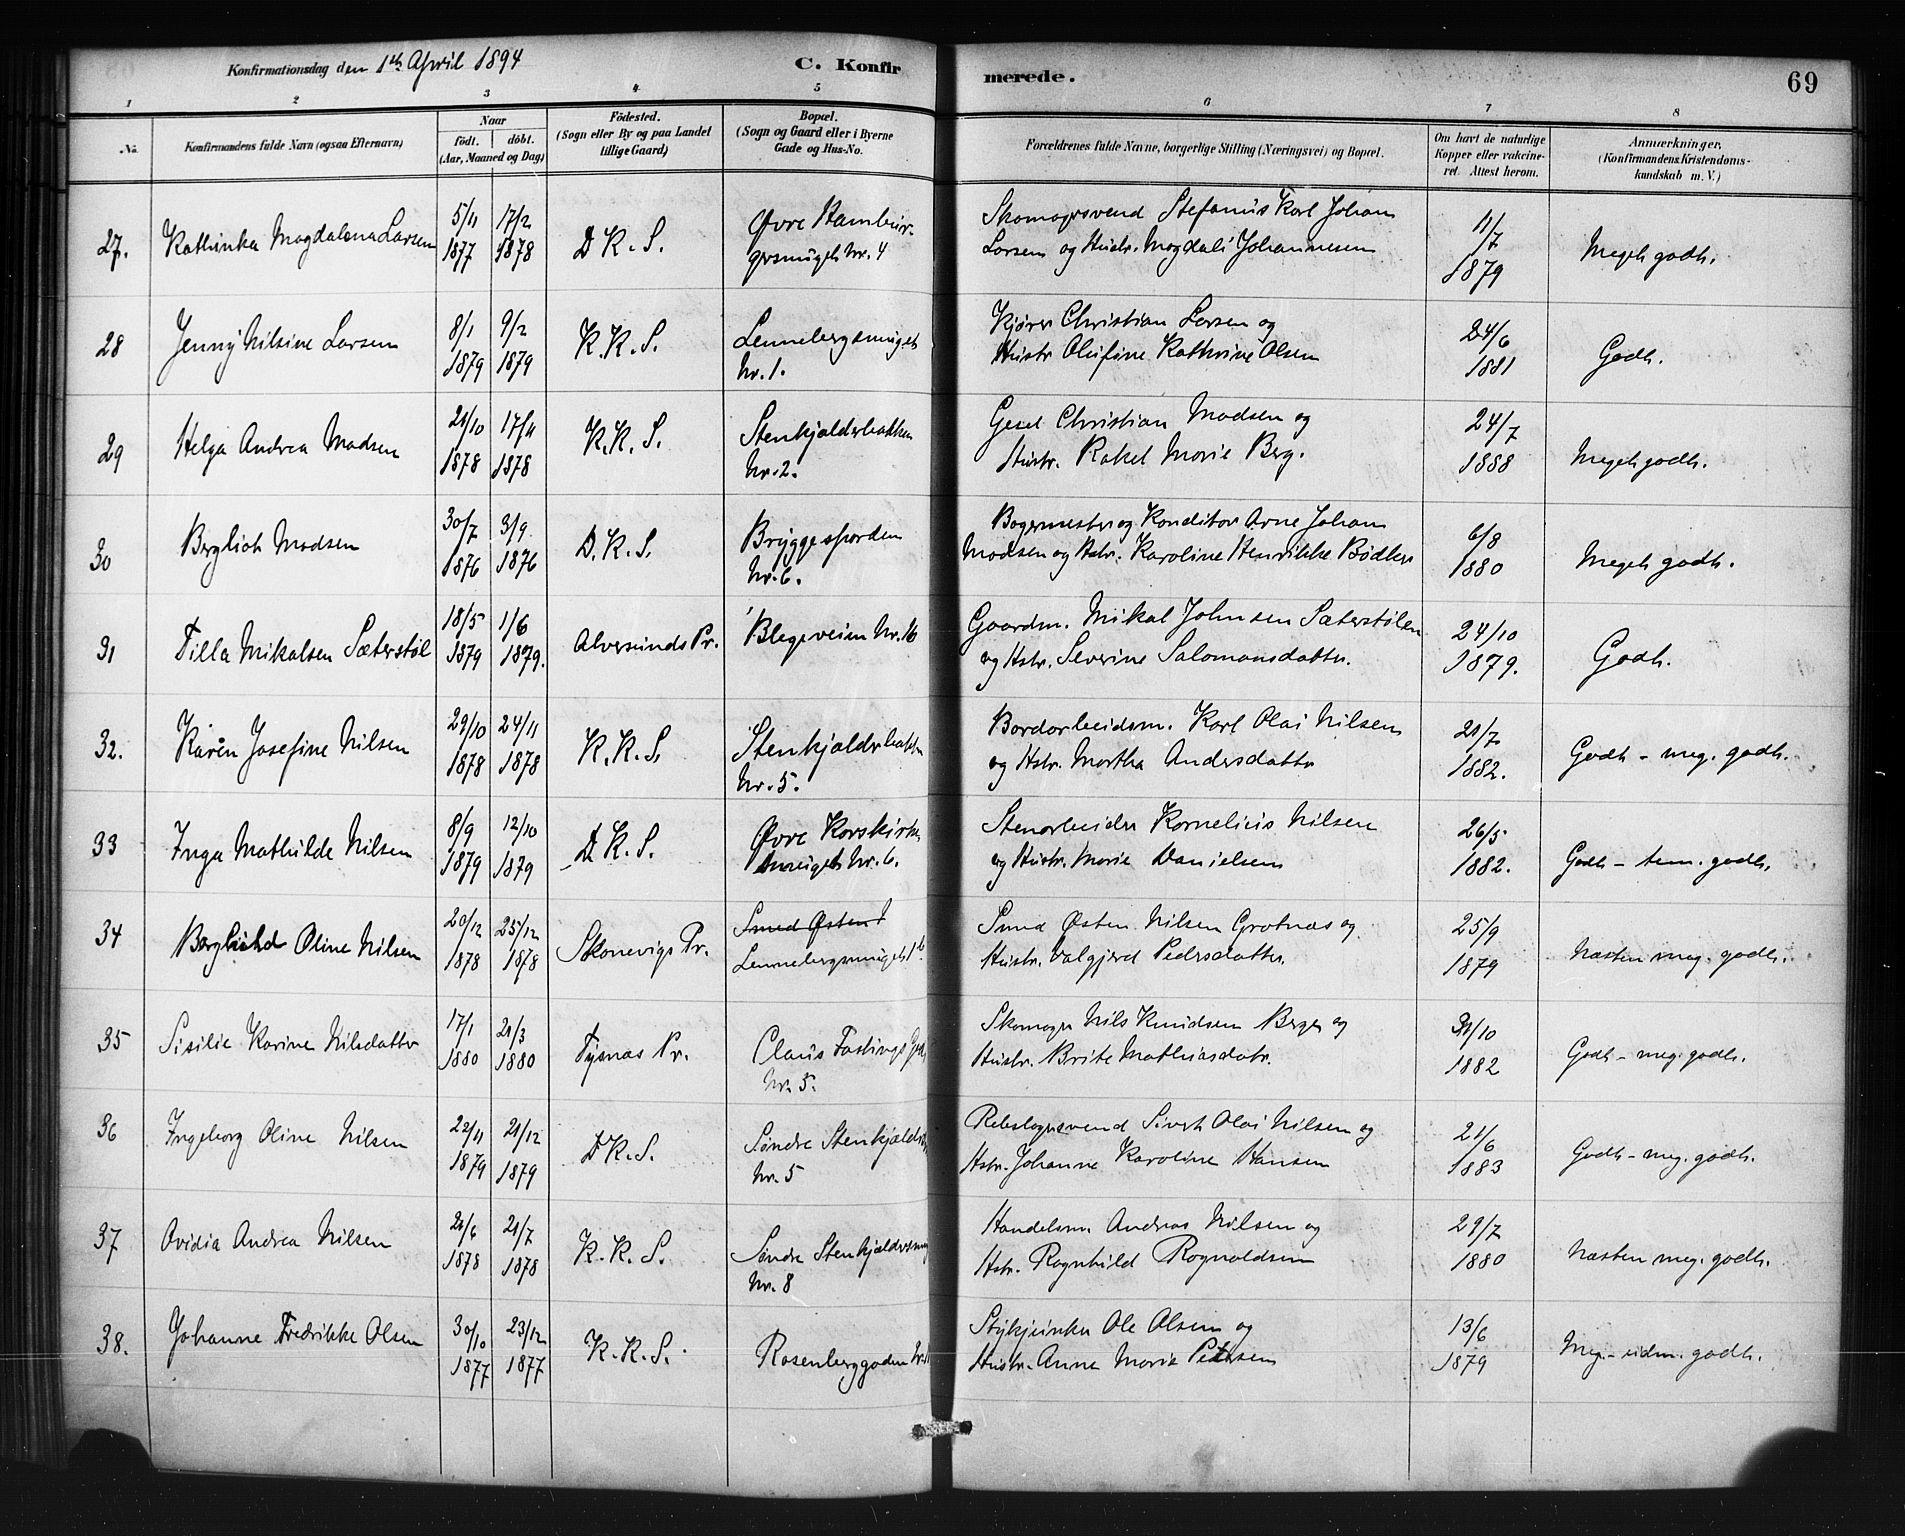 Konfirmationsdag den 1ste April 1894
C. Konfirmerede.
69
1 2 3 4 5 6 7 8
No.
Konfirmandens fulde Navn (ogsaa Efternavn)
Naar
födt. döbt.
(Aar, Maaned og Dag)
Födested.
(Sogn eller By og paa Landet
tillige Gaard)
Bopæl.
(Sogn og Gaard eller i Byerne
Gade og Hus-No.
Forældrenes fulde Navne, borgerlige Stilling (Næringsvei) og Bopæl.
Om havt de naturlige
Kopper eller vakcine-
ret. Attest herom.
Anmærkninger.
(Konfirmandens Kristendoms-
kundskab m. V.)
27. Kathinka Magdalena Larsen 5/11 1877 17/2 1878 D.K.S. Øvre Hambur-
gersmuget Nr. 4
Skomagersvend Stefanus Karl Johan
Larsen og Hustr. Magdali Johannesen
11/7 1879 Meget godt.
28 Jenny Nilsine Larsen 8/1 1879 9/2 1879 K.K.S. Lennebergsmuget
Nr. 1.
Kjører Christian Larsen og
Hustr. Olufine Kathrine Olsen
24/6 1881 Godt.
29 Helga Andrea Madsen 21/10 1878 17/11 1878 K.K.S. Stenkjælderbakken
Nr. 2.
Gesel Christian Madsen og
Hustr. Rakel Marie Berg.
24/7 1888 Meget godt.
30 Bergliot Madsen 30/7 1876 3/9 1876 D.K.S. Bryggesporden
Nr. 6.
Bagermester og Konditor Arne Johan
Madsen og Hstr. Karoline Henrikke Bødker
6/8 1880 Meget godt.
31 Tilla Mikalsen Sæterstøl 18/5 1879 1/6 1879. Alversunds Pr. Blegeveien Nr. 16
Gaardm. Mikal Johnsen Sæterstølen
og Hstr. Severine Salomonsdatter.
24/10 1879. Godt.
32. Karen Josefine Nilsen 29/10 1878 24/11 1878 K.K.S. Stenkjælderbakken
Nr. 5.
Bordarbeidsm. Karl Olai Nilsen
og Hstr. Martha Andersdatter
21/7 1882. Godt - meg. godt.
33 Inga Mathilde Nilsen 8/9 1879 12/10 1879 D.K.S. Øvre Korskirke
smuget Nr. 6.
Stenarbeider Kornelius Nilsen
og Hustr. Marie Danielsen
26/5 1882. Godt - tem. godt.
34 Oline Nilsen 20/12 1878 25/12 1878 Skonevigs Pr. Smed Østen
Lennebergsmuget 1 b
Smed Østen Nilsen Grotnæs og
Hustr. Valgjerd Pedersdatter.
25/9 1879 Næsten meg. godt.
35 Sisilie Karine Nilsdatter 17/1 1880 21/3 1880 Tysnæs Pr. Claus Fastings Gd.
Nr. 5.
Skomager Nils Knudsen Berge og
Hustr. Brite Mathiasdatr.
31/10 1882 Godt - meg. godt.
36 Ingeborg Oline Nilsen 22/11 1879 21/12 1879 D.K.S. Søndre Stenkjælders
Nr. 5
Rebslagersvend Sivert Olai Nilsen og
Hstr. Johanne Karoline Hansen
21/6 1883 Godt - meg. godt.
37 Ovidia Andrea Nilsen 21/6 1878 21/7 1878 K.K.S. Søndre Stenkjældersmug
Nr. 8
Handelsm. Andreas Nilsen og
Hstr. Ragnhild Rognaldsen
29/7 1880 Næsten meg. godt.
38. Johanne Fredrikke Olsen 30/10 1877 23/12 1877 K.K.S. Rosenberggaden
Stykjunker Ole Olsen og
Hustr. Anne Marie Petersen
13/6 1879 Meg. - udm. godt.